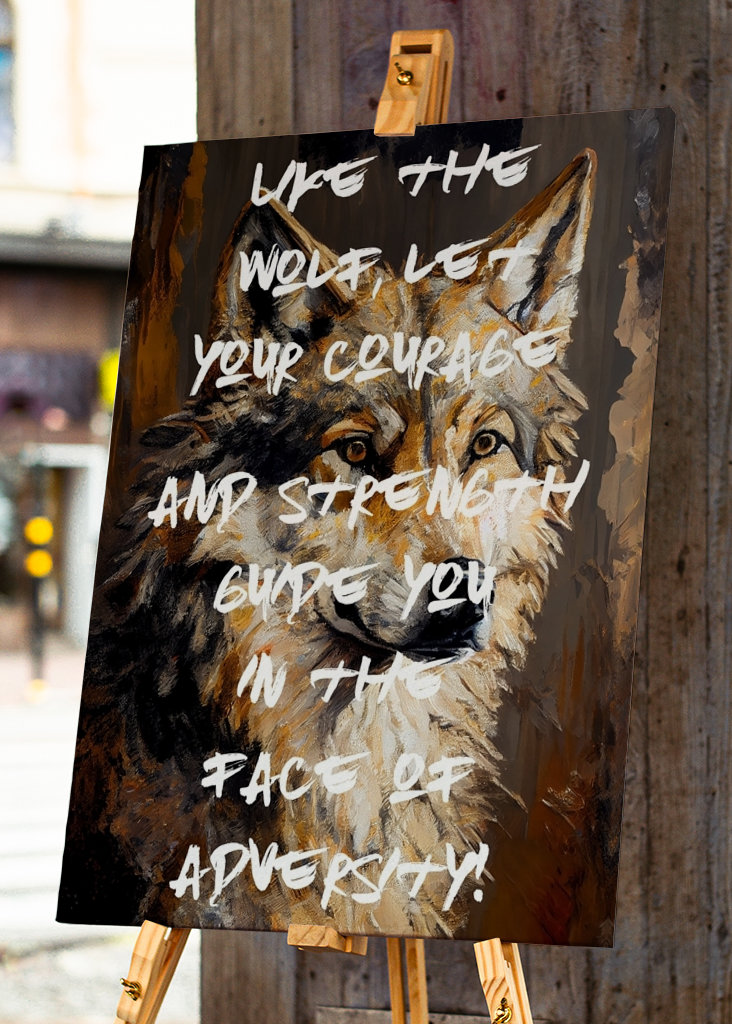 LIKE THE
WOLF, LET
YOUR COURAGE
AND STRENGTH
GUIDE YOU
IN THE
FACE OF
ADVERSITY!